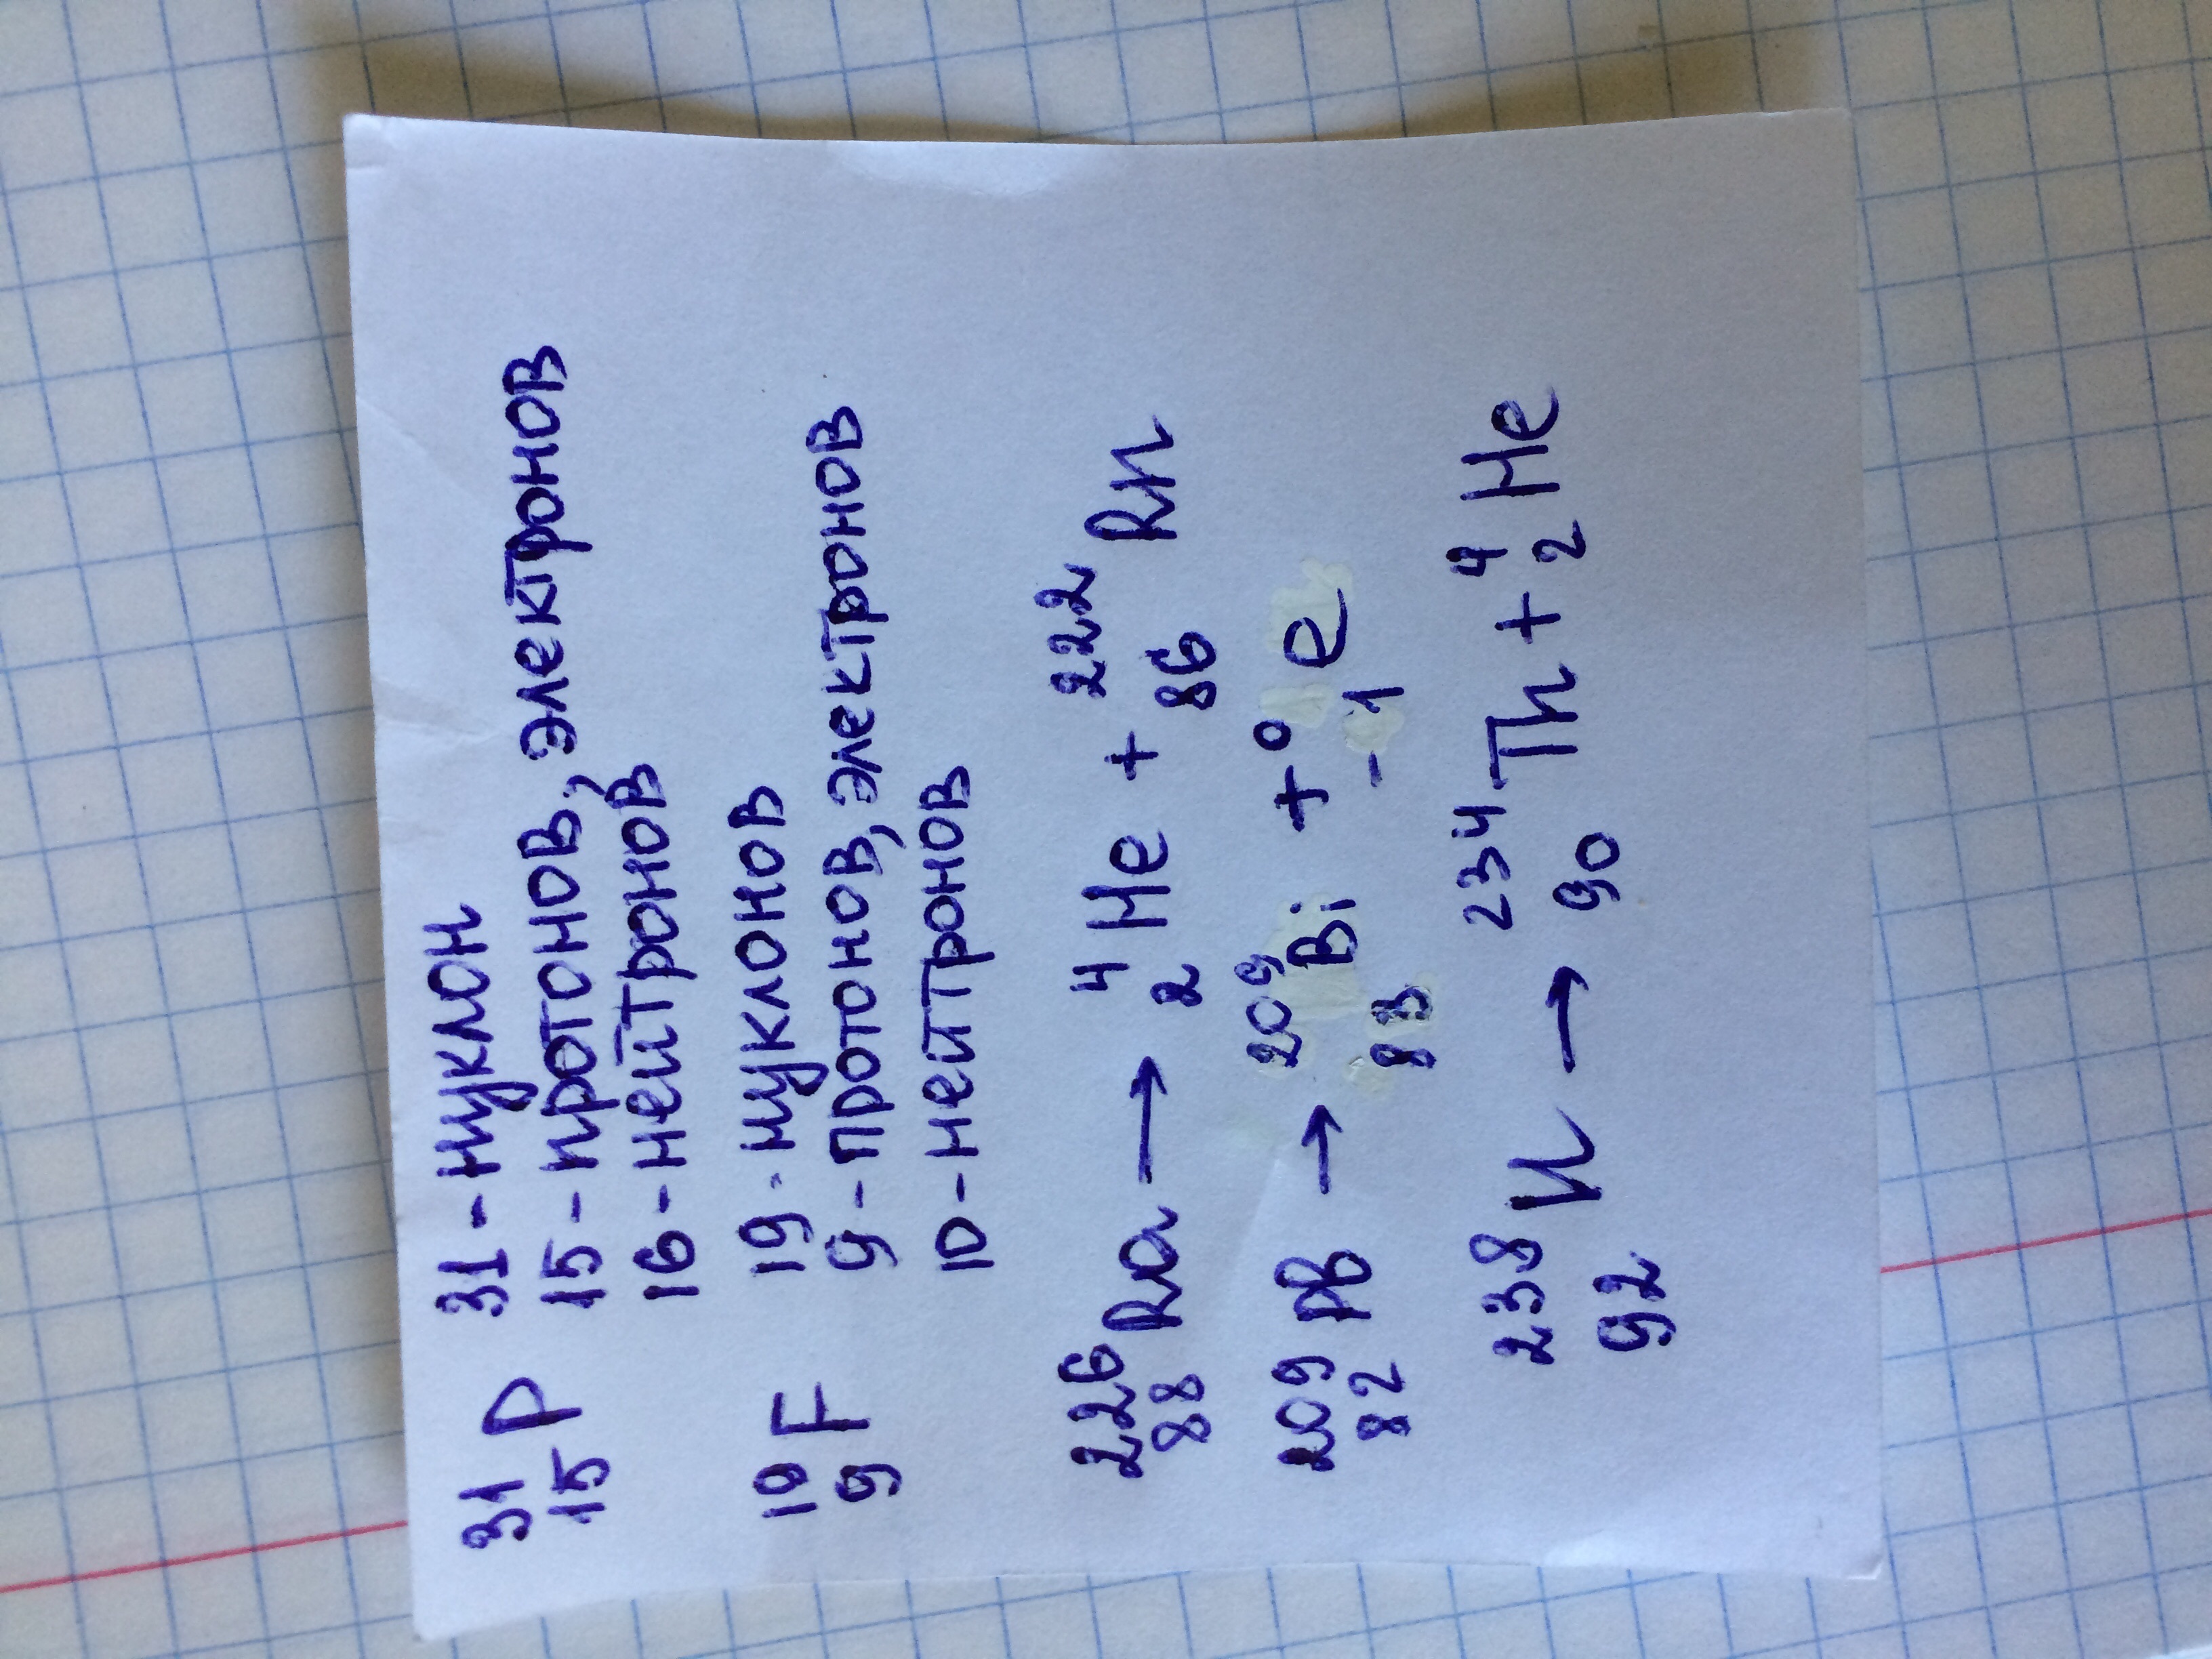 31 31 - нуклон
15 P 15 - протонов, электронов
16 - нейтронов
19 19 - нуклонов
9 F 9 - протонов, электронов
10 - нейтронов
226 88 Ra → 4 2 He + 222 86 Rn
209 82 Pb → 209 83 Bi + 0 -1 e
238 92 U → 234 90 Th + 4 2 He